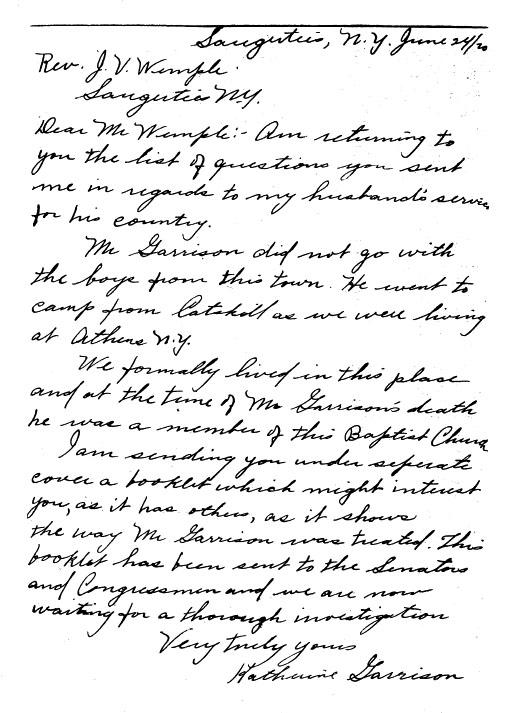 Saugerties, N.Y. June 24/20
Rev. J. V. Wemple
Saugerties N.Y.
Dear Mr Wemple:- Am returning to
you the list of questions you sent
me in regards to my husband's service
for his country.
Mr Garrison did not go with
the boys from this town. He went to
camp from Catskill as we were living
at Athens N.Y.
We formally lived in this place
and at the time of Mr Garrison's death
he was a member of this Baptist Church
I am sending you under seperate
cover a booklet which might interest
you, as it has others, as it shows
the way Mr Garrison was treated. This
booklet has been sent to the Senators
and Congressmen and we are now
waiting for a thorough investigation
Very truly yours
Katherine Garrison